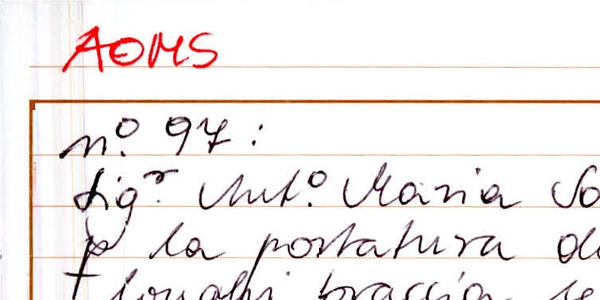 AOMS
nº. 97:
Sigʳ. Antº. Maria So
p la portatura d
braccia se